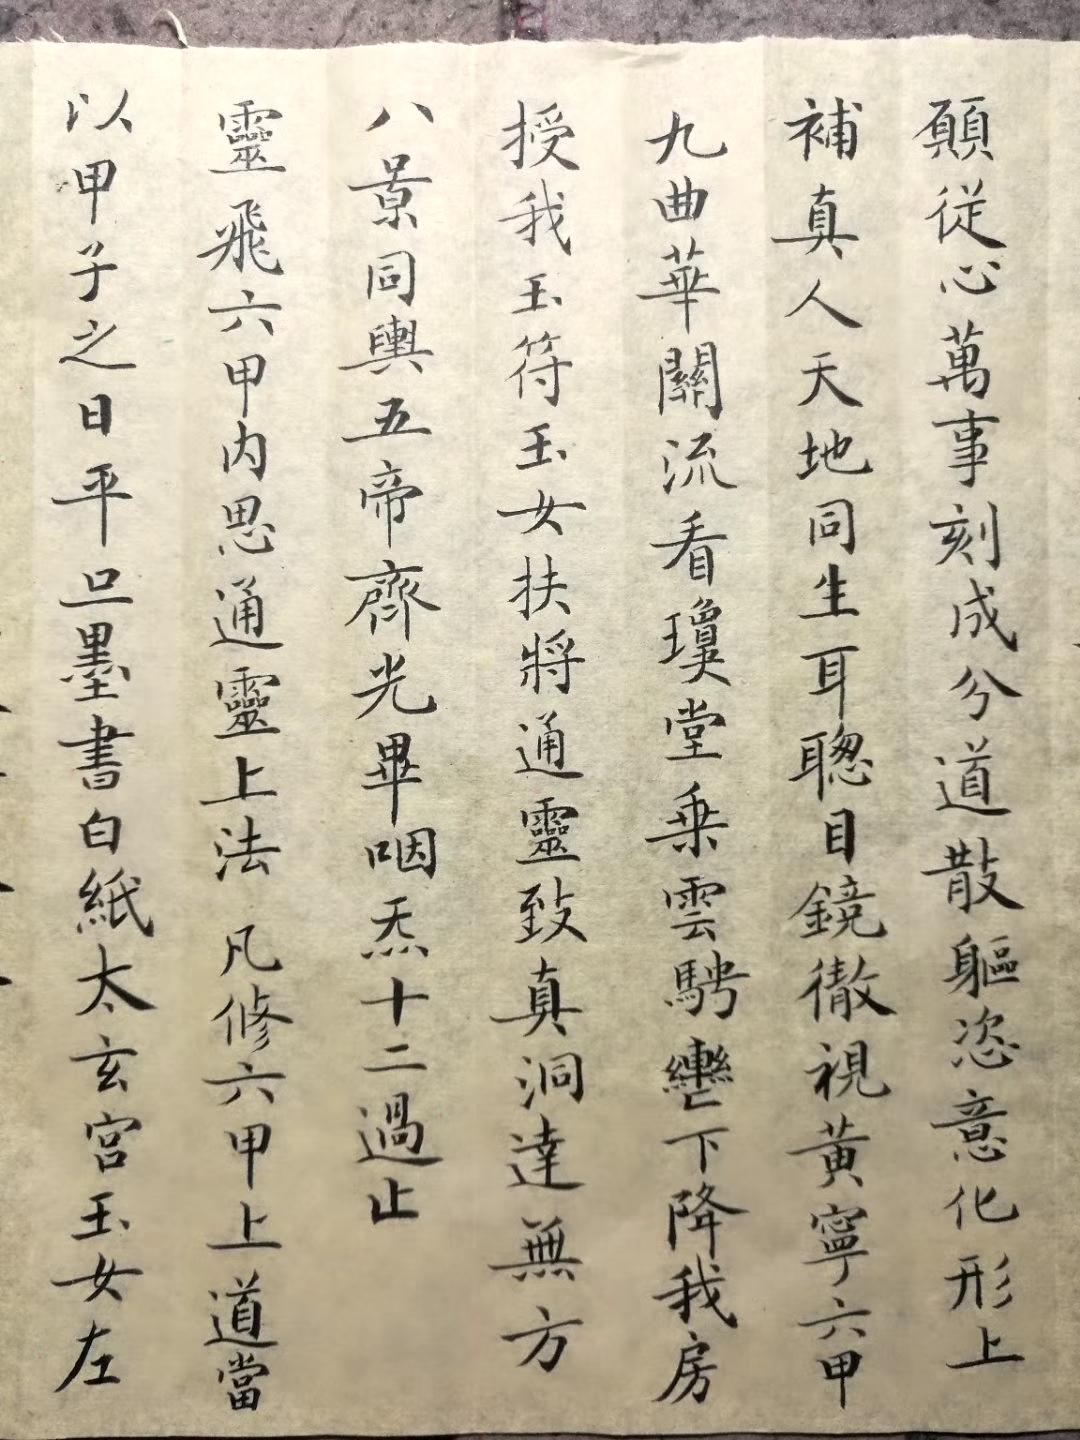 願從心萬事刻成兮道散軀恣意化形上
補真人天地同生耳聰目鏡徹視黃寧六甲
九曲華關流看瓊堂乘雲騁轡下降我房
授我玉符玉女扶將通靈致真洞達無方
八景同輿五帝齊光畢咽炁十二過止
靈飛六甲內思通靈上法 凡修六甲上道當
以甲子之日平旦墨書白紙太玄宮玉女左